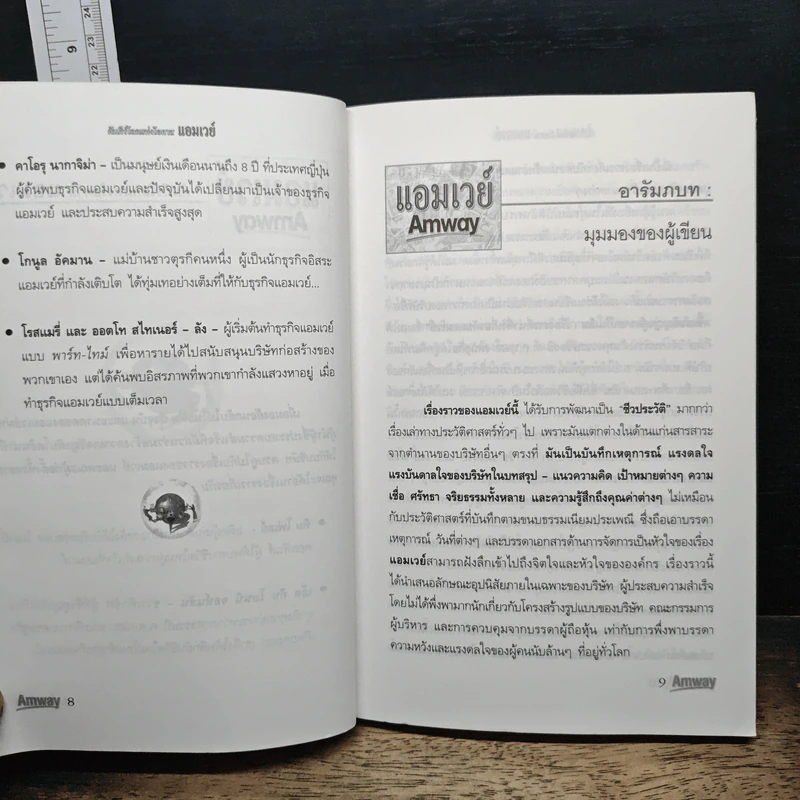 แอมเวย์
• คาโอรุ นากาจิม่า – เป็นมนุษย์เงินเดือนนานถึง 8 ปี ที่ประเทศญี่ปุ่น
ผู้ค้นพบธุรกิจแอมเวย์และปัจจุบันได้เปลี่ยนมาเป็นเจ้าของธุรกิจ
แอมเวย์ และประสบความสำเร็จสูงสุด
• โกนูล อัคมาน – แม่บ้านชาวตุรกีคนหนึ่ง ผู้เป็นนักธุรกิจอิสระ
แอมเวย์ที่กำลังเติบโต ได้ทุ่มเทอย่างเต็มที่ให้กับธุรกิจแอมเวย์...
• โรสแมรี่ และ ออตโท สไทเนอร์ – ลัง – ผู้เริ่มต้นทำธุรกิจแอมเวย์
แบบ พาร์ท-ไทม์ เพื่อหารายได้ไปสนับสนุนบริษัทก่อสร้างของ
พวกเขาเอง แต่ได้ค้นพบอิสรภาพที่พวกเขากำลังแสวงหาอยู่ เมื่อ
ทำธุรกิจแอมเวย์แบบเต็มเวลา
Amway 8
แอมเวย์
Amway
อารัมภบท :
มุมมองของผู้เขียน
เรื่องราวของแอมเวย์นี้ ได้รับการพัฒนาเป็น "ชีวประวัติ" มากกว่า
เรื่องเล่าทางประวัติศาสตร์ทั่วๆ ไป เพราะมันแตกต่างในด้านแก่นสารสาระ
จากตำนานของบริษัทอื่นๆ ตรงที่ มันเป็นบันทึกเหตุการณ์ แรงดลใจ
แรงบันดาลใจของบริษัทในบทสรุป – แนวความคิด เป้าหมายต่างๆ ความ
เชื่อ ศรัทธา จริยธรรมทั้งหลาย และความรู้สึกถึงคุณค่าต่างๆ ไม่เหมือน
กับประวัติศาสตร์ที่บันทึกตามขนบธรรมเนียมประเพณี ซึ่งถือเอาบรรดา
เหตุการณ์ วันที่ต่างๆ และบรรดาเอกสารด้านการจัดการเป็นหัวใจของเรื่อง
แอมเวย์สามารถฝังลึกเข้าไปถึงจิตใจและหัวใจขององค์กร เรื่องราวนี้
ได้นำเสนอลักษณะอุปนิสัยภายในเฉพาะของบริษัท ผู้ประสบความสำเร็จ
โดยไม่ได้พึ่งพามากนักเกี่ยวกับโครงสร้างรูปแบบของบริษัท คณะกรรมการ
ผู้บริหาร และการควบคุมจากบรรดาผู้ถือหุ้น เท่ากับการพึ่งพาบรรดา
ความหวังและแรงดลใจของผู้คนนับล้านๆ ที่อยู่ทั่วโลก
9 Amway